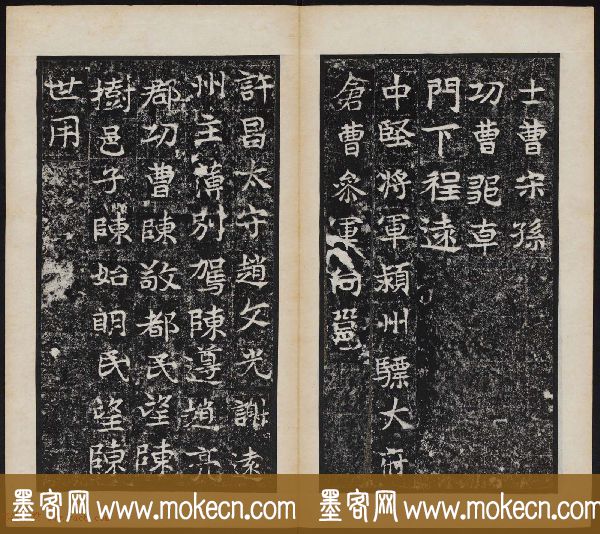 士曹宋孫
功曹
門下程遠
中堅將軍潁州驃大府
倉曹參軍向邕
許昌太守趙文光謝遠
州主薄別駕陳遵趙亮
郡功曹陳敬都民望陳
樹邑子陳始明民望陳
世用
墨客网 www.mokecn.com 墨客网 www.mokecn.com